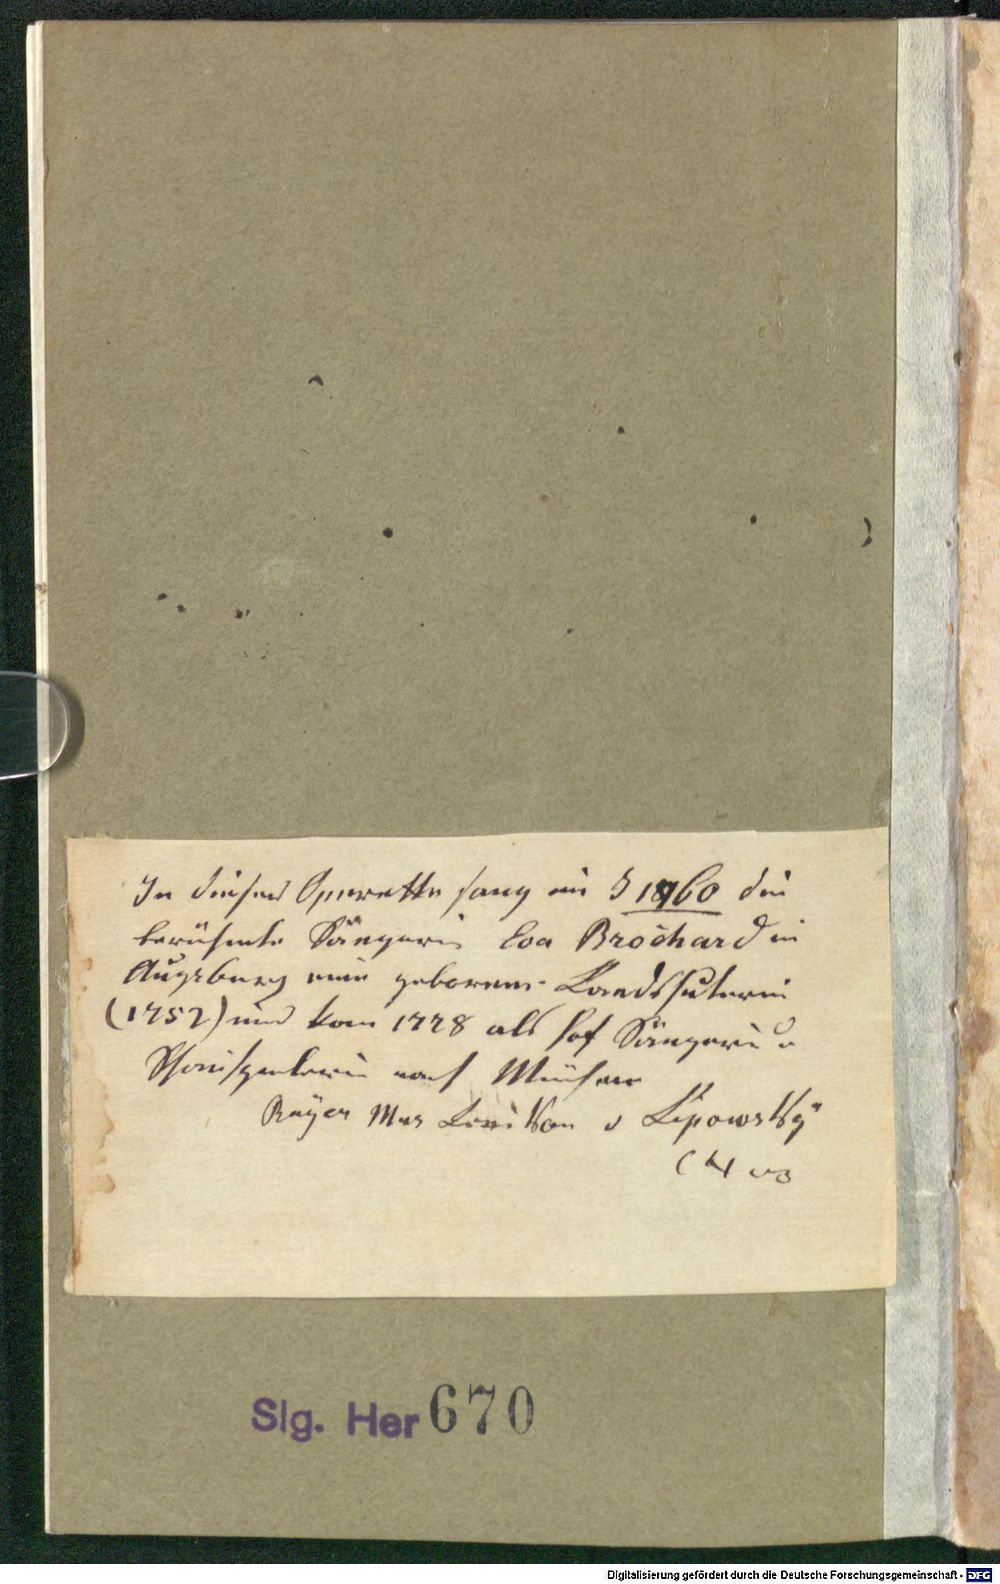 In dieser Operette sang im J 1760 die
berühmte Sängerin Eva Brochard in
Augsburg eine geborene Landshuterin
(1752) und kam 1778 als Hof Sängerin u
Schauspielerin nach München
Bayer Mus Lexikon v Lipowsky
Slg. Her 670
Digitalisierung gefördert durch die Deutsche Forschungsgemeinschaft - DFG